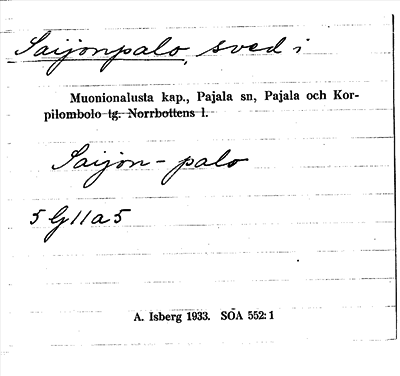 Saijonpalo, sved i
Muonionalusta kap., Pajala sn, Pajala och Kor-
pilombolo tg. Norrbottens l.
Saijon-palo
5 G 11 a 5
A. Isberg 1933. SÖA 552: 1